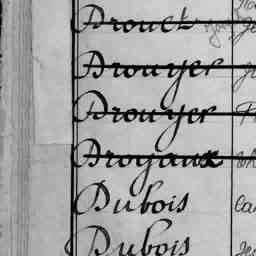 Drouet
Drouyer
Drouyer
Droyaux
Dubois
Dubois